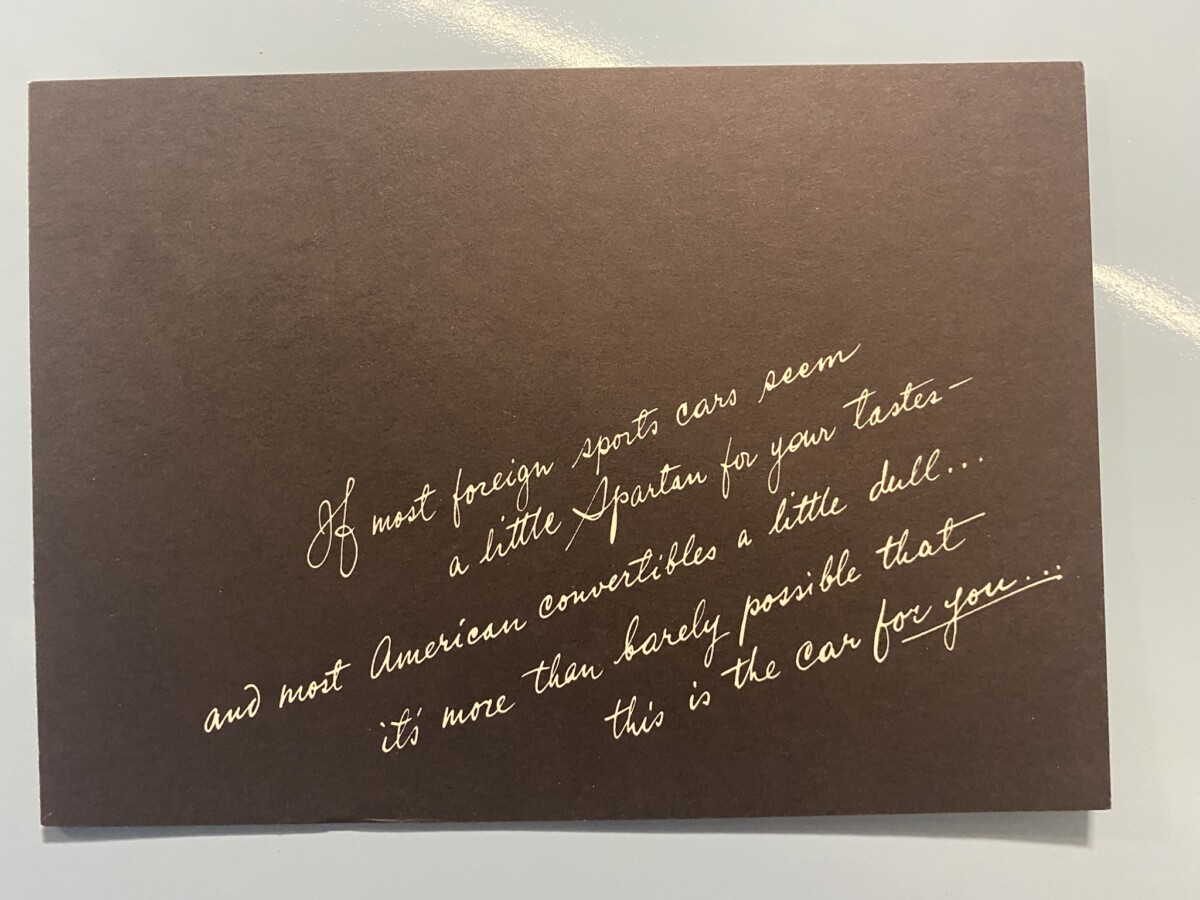 If most foreign sports cars seem
a little Spartan for your tastes—
and most American convertibles a little dull...
it's more than barely possible that
this is the car for you...